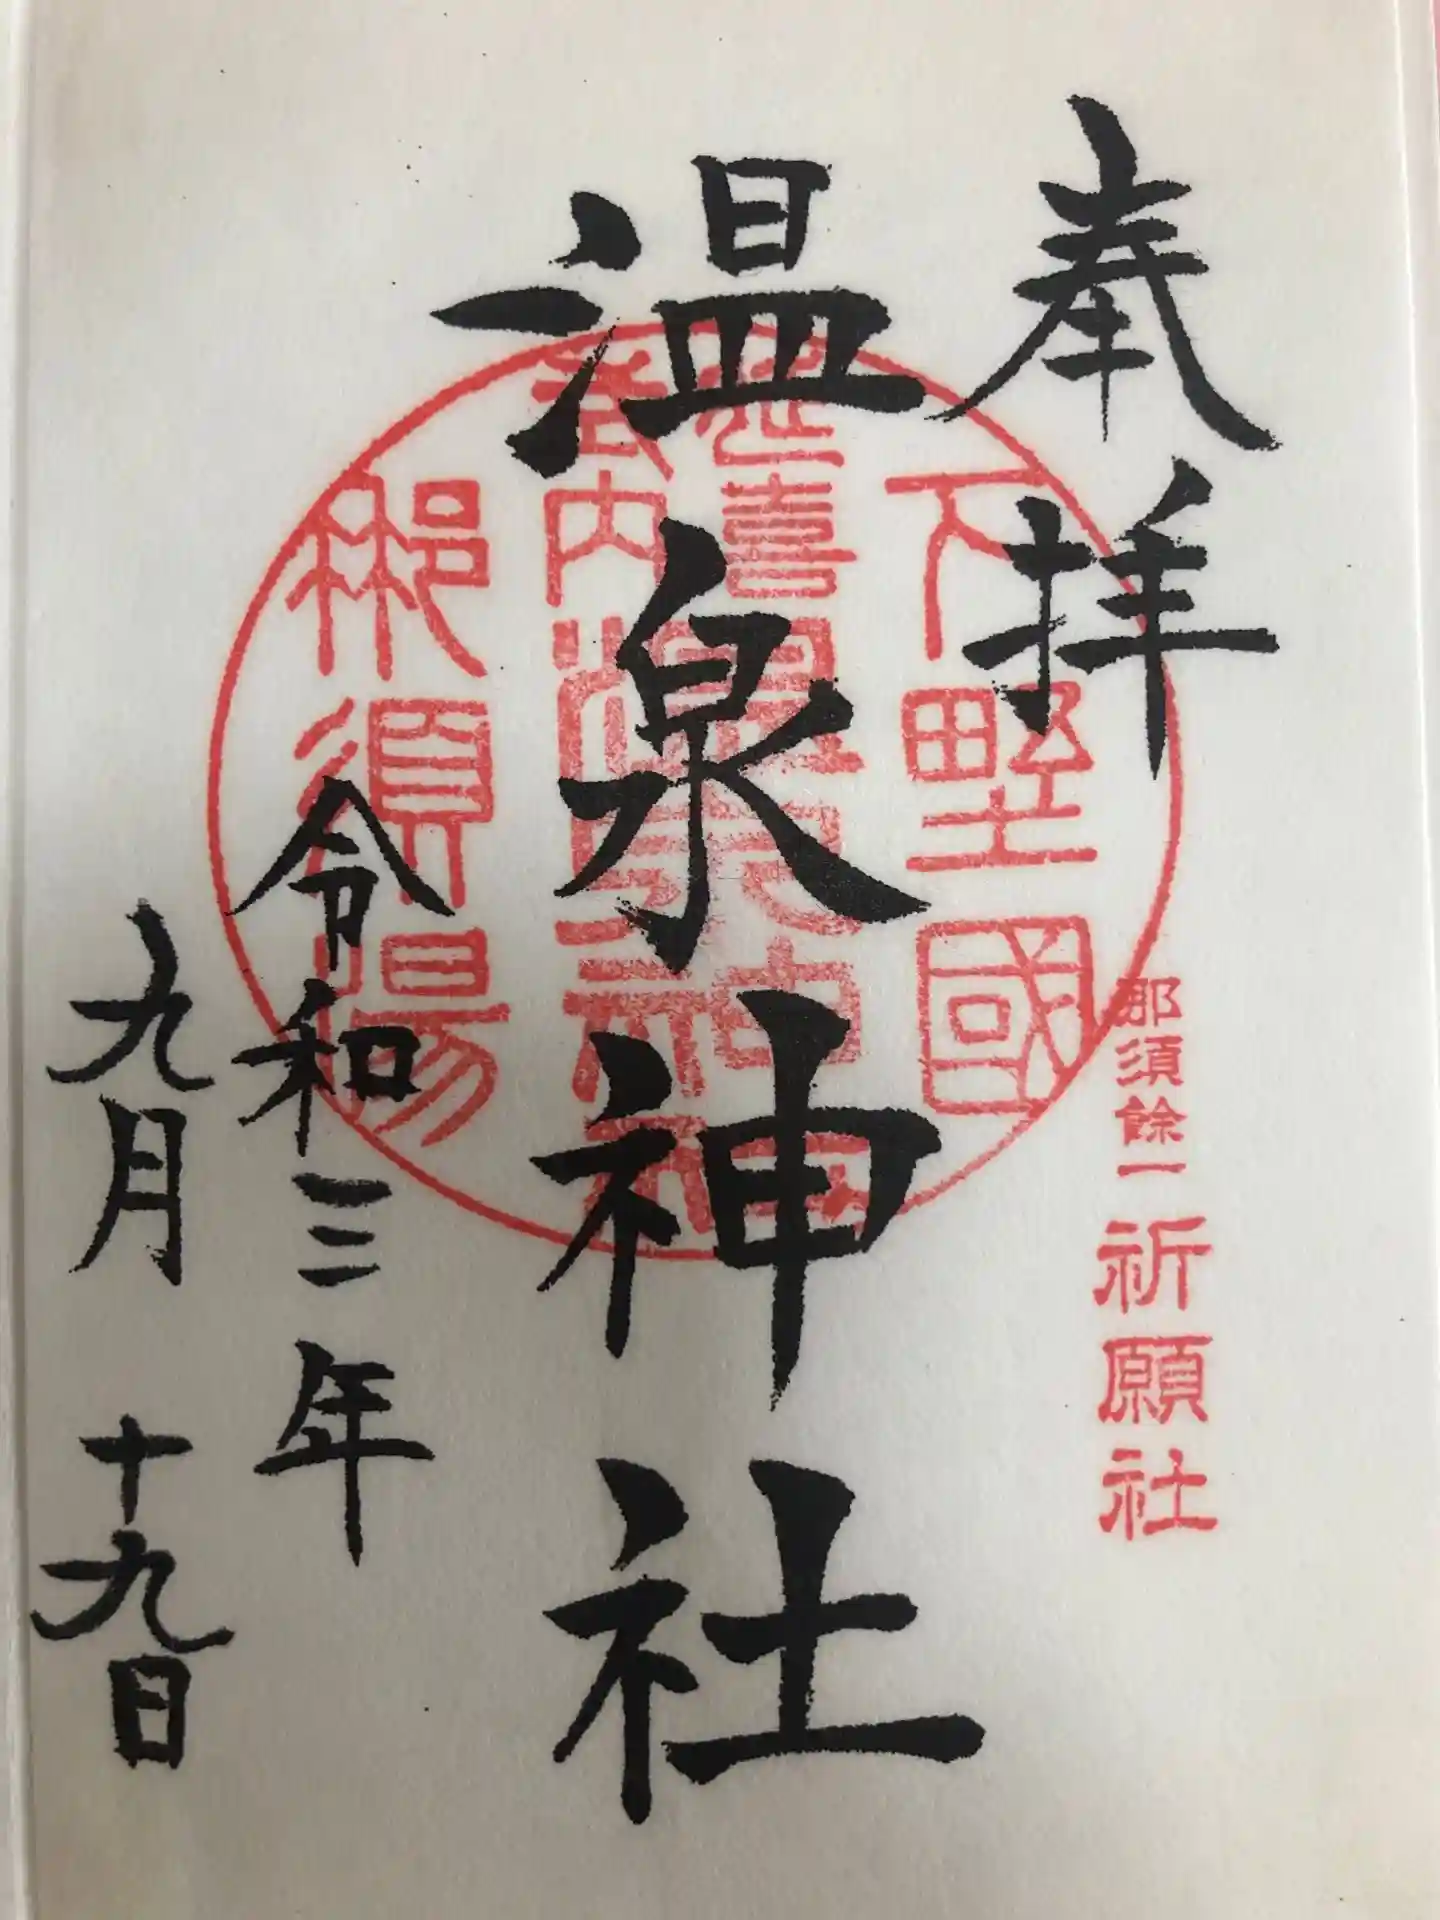 奉拝
那須餘一祈願社
下野國
延喜式内
温泉神社
那須湯
温泉神社
令和三年
九月十九日